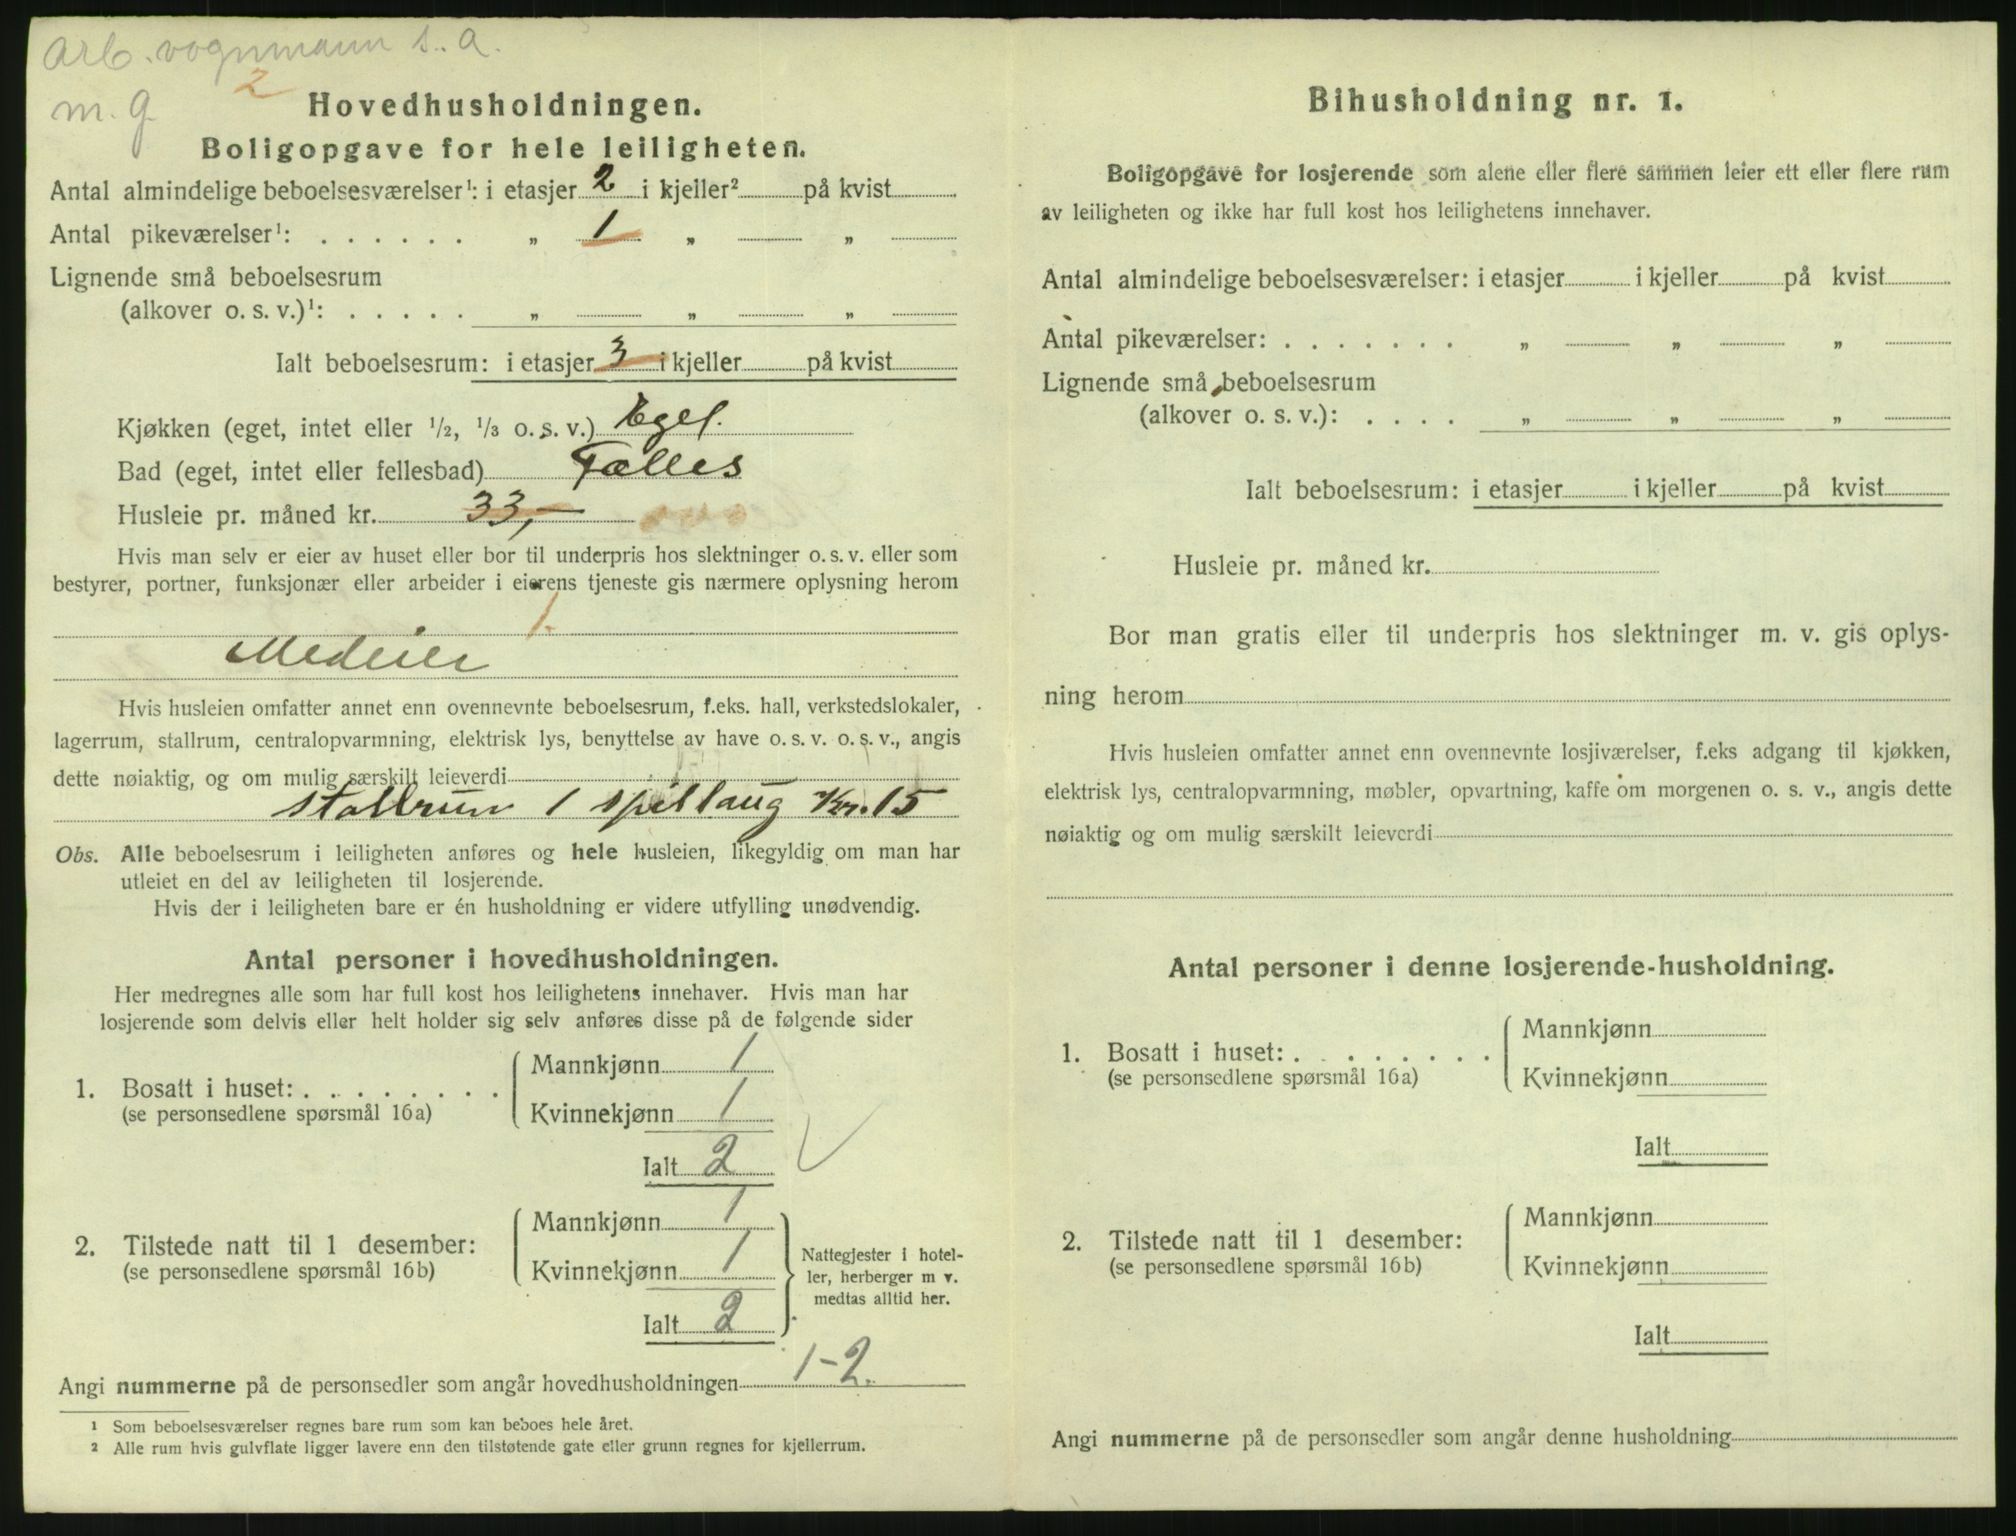 arb. vognmann s. a.
m. g. 2
Hovedhusholdningen.
Boligopgave for hele leiligheten.
Antal almindelige beboelsesværelser¹: i etasjer 2 i kjeller² på kvist
Antal pikeværelser¹: . . . . . . „ 1 „ „
Lignende små beboelsesrum
(alkover o. s. v.)¹: . . . . . „ „ „
Ialt beboelsesrum: i etasjer 3 i kjeller på kvist
Kjøkken (eget, intet eller 1/2, 1/3 o. s. v.) Eget.
Bad (eget, intet eller fellesbad) Fælles
Husleie pr. måned kr. 33,-
Hvis man selv er eier av huset eller bor til underpris hos slektninger o. s. v. eller som
bestyrer, portner, funksjonær eller arbeider i eierens tjeneste gis nærmere oplysning herom
1.
Medeier
Hvis husleien omfatter annet enn ovennevnte beboelsesrum, f.eks. hall, verkstedslokaler,
lagerrum, stallrum, centralopvarmning, elektrisk lys, benyttelse av have o. s. v. o. s. v., angis
dette nøiaktig, og om mulig særskilt leieverdi
stallrum 1 spiltaug Kr. 15
Obs. Alle beboelsesrum i leiligheten anføres og hele husleien, likegyldig om man har
utleiet en del av leiligheten til losjerende.
Hvis der i leiligheten bare er én husholdning er videre utfylling unødvendig.
Antal personer i hovedhusholdningen.
Her medregnes alle som har full kost hos leilighetens innehaver. Hvis man har
losjerende som delvis eller helt holder sig selv anføres disse på de følgende sider
Mannkjønn 1
1. Bosatt i huset: . . . . . . . .
(se personsedlene spørsmål 16a)
Kvinnekjønn 1
Ialt 2
Mannkjønn 1
2. Tilstede natt til 1 desember:
(se personsedlene spørsmål 16b)
Kvinnekjønn 1
Ialt 2
Nattegjester i hotel-
ler, herberger m v.
medtas alltid her.
Angi nummerne på de personsedler som angår hovedhusholdningen 1-2.
¹ Som beboelsesværelser regnes bare rum som kan beboes hele året.
² Alle rum hvis gulvflate ligger lavere enn den tilstøtende gate eller grunn regnes for kjellerrum.
Bihusholdning nr. 1.
Boligopgave for losjerende som alene eller flere sammen leier ett eller flere rum
av leiligheten og ikke har full kost hos leilighetens innehaver.
Antal almindelige beboelsesværelser: i etasjer i kjeller på kvist
Antal pikeværelser: . . . . . . . „ „ „
Lignende små beboelsesrum
(alkover o. s. v.): . . . . „ „ „
Ialt beboelsesrum: i etasjer i kjeller på kvist
Husleie pr. måned kr.
Bor man gratis eller til underpris hos slektninger m. v. gis oplys-
ning herom
Hvis husleien omfatter annet enn ovennevnte losjiværelser, f.eks adgang til kjøkken,
elektrisk lys, centralopvarmning, møbler, opvartning, kaffe om morgenen o. s. v., angis dette
nøiaktig og om mulig særskilt leieverdi
Antal personer i denne losjerende-husholdning.
Mannkjønn
1. Bosatt i huset: . . . . . . . .
(se personsedlene spørsmål 16a)
Kvinnekjønn
Ialt
Mannkjønn
2. Tilstede natt til 1 desember:
(se personsedlene spørsmål 16b)
Kvinnekjønn
Ialt
Angi nummerne på de personsedler som angår denne husholdning